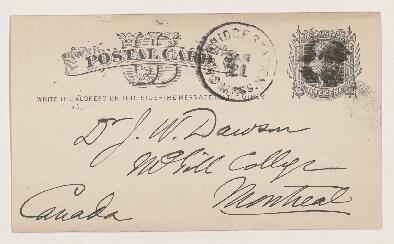 POSTAL CARD
WRITE THE ADDRESS ON THIS SIDE-THE MESSAGE ON THE OTHER
CAMBRIDGE STA. MASS.
21
Dr J. W. Dawson
McGill College
Montreal
Canada